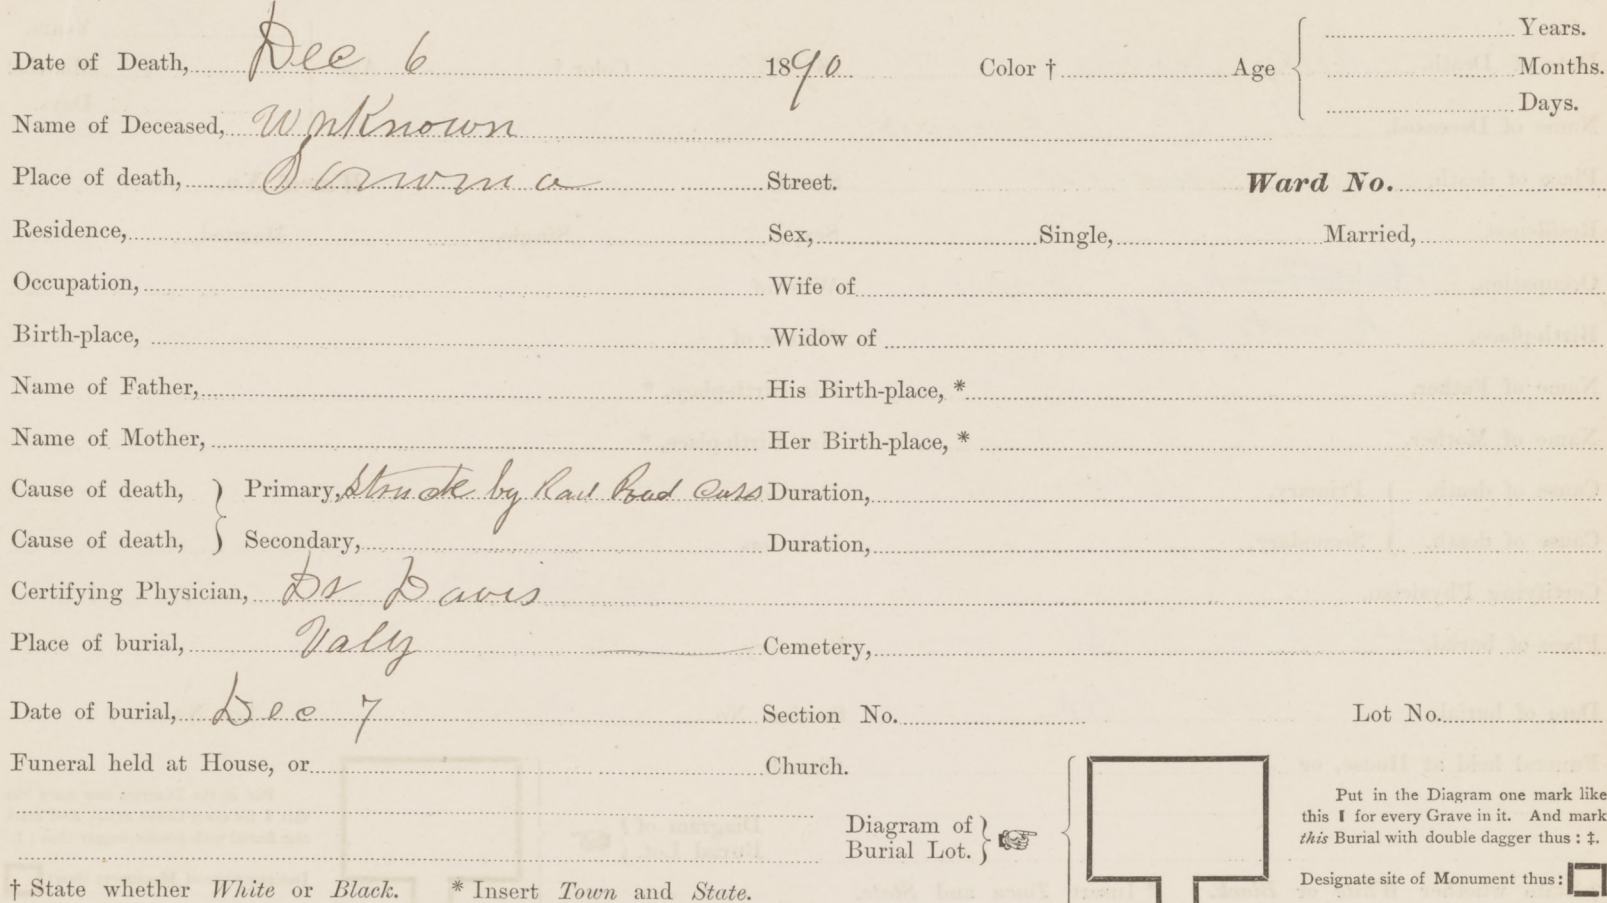 Date of Death, Dec 6 1890 Color † Age Years.
Months.
Days.
Name of Deceased, UnKnown
Place of death, Sonoma Street. Ward No.
Residence, Sex, Single, Married,
Occupation, Wife of
Birth-place, Widow of
Name of Father, His Birth-place, *
Name of Mother, Her Birth-place, *
Cause of death, } Primary, Struck by Rail Road Cars Duration,
Cause of death, } Secondary, Duration,
Certifying Physician, Dr Davis
Place of burial, Valy Cemetery,
Date of burial, Dec 7 Section No. Lot No.
Funeral held at House, or Church.
Diagram of
Burial Lot.
Put in the Diagram one mark like
this ▌ for every Grave in it. And mark
this Burial with double dagger thus : ‡.
Designate site of Monument thus :
† State whether White or Black. * Insert Town and State.